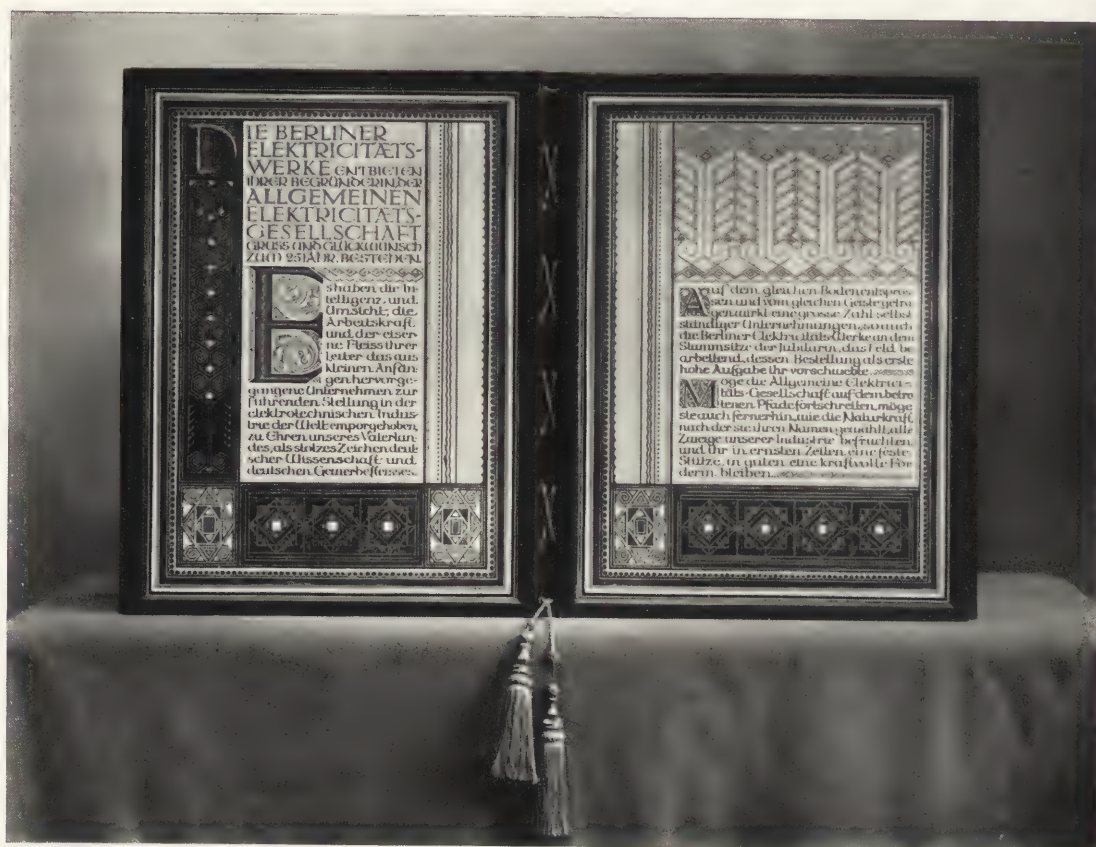 DIE BERLINER
ELEKTRICITÆTS-
WERKE ENTBIETEN
IHRER BEGRÜNDERIN DER
ALLGEMEINEN
ELEKTRICITÆTS-
GESELLSCHAFT
GRUSS UND GLÜCKWUNSCH
ZUM 25JÄHR. BESTEHEN.
Es haben die In-
telligenz und
Umsicht, die
Arbeitskraft
und der eiser-
ne Fleiss ihrer
Leiter das aus
kleinen Anfän-
gen hervorge-
gangene Unternehmen zur
führenden Stellung in der
elektrotechnischen Indus-
trie der Welt emporgehoben,
zu Ehren unseres Vaterlan-
des, als stolzes Zeichen deut-
scher Wissenschaft und
deutschen Gewerbefleisses.
Auf dem gleichen Boden entspros-
sen und vom gleichen Geiste getra-
gen wirkt eine grosse Zahl selbst
ständiger Unternehmungen, so auch
die Berliner Elektricitäts-Werke an dem
Stammsitze der Jubilarin, das Feld be-
arbeitend, dessen Bestellung als erste
hohe Aufgabe ihr vorschwebte.
Möge die Allgemeine Elektrici-
täts-Gesellschaft auf dem betre
tenen Pfade fortschreiten, möge
sie auch fernerhin, wie die Naturkraft,
nach der sie ihren Namen gewählt, alle
Zweige unserer Industrie befruchten
und ihr in ernsten Zeiten eine feste
Stütze, in guten eine kraftvolle För
derin bleiben.